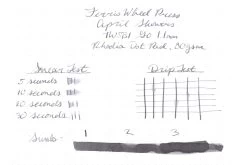 Ferris Wheel Press
April Showers
TWSBI 580 1.1mm
Rhodia Dot Pad, 80gsm
Smear Test
Drip Test
5 seconds
10 seconds
20 seconds
30 seconds
Swab:
1 2 3